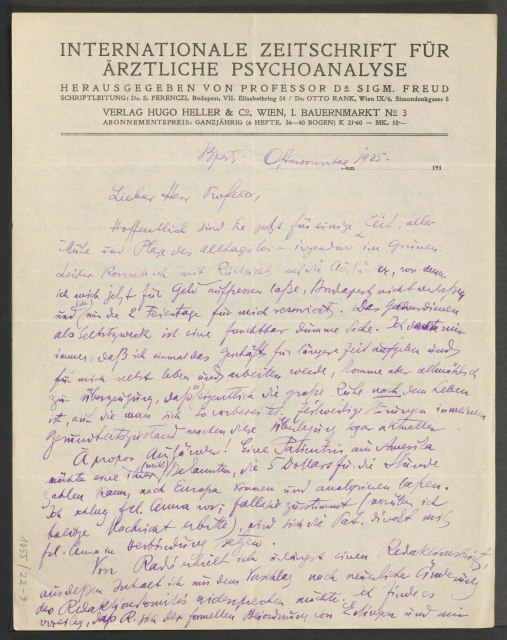 INTERNATIONALE ZEITSCHRIFT FÜR
ÄRZTLICHE PSYCHOANALYSE
HERAUSGEGEBEN VON PROFESSOR Dr SIGM. FREUD
SCHRIFTLEITUNG: Dr. S. FERENCZI, Budapest, VII. Elisabethring 54 / Dr. OTTO RANK, Wien IX/4, Simondenkgasse 8
VERLAG HUGO HELLER & Co, WIEN, I. BAUERNMARKT No 3
ABONNEMENTSPREIS: GANZJÄHRIG (6 HEFTE, 36—40 BOGEN) K 21·60 = MK. 18·—
Bpest, Ostersonntag 1925.
191
Lieber Herr Professor,
Hoffentlich sind Sie jetzt für einige Zeit, aller
Mühe und Plage des Alltags los – irgendwo im Grünen.
Leider konnte ich mit Rücksicht auf die Ausländer, von denen
ich mich jetzt für Geld auffressen laße, Budapest nicht verlaßen
und nur die 2 Feiertage für mich reserviert. Das Geldverdienen
als Selbstzweck ist eine furchtbar dumme Sache. Ich dachte mir
immer, daß ich einmal das Geschäft für längere Zeit aufgeben und
für mich selbst leben und arbeiten werde, komme aber allmählich
zur Überzeugung, daß eigentlich die große Ruhe nach dem Leben
ist, auf die man sich so vorbereitet; zeitweilige Störungen in meinem
Gesundheitszustand machen diese Überlegung sogar aktueller.
À propos Ausländer! Eine Patientin aus Amerika
möchte eine ihrer Bekannten, die 5 Dollars für die Stunde
zahlen kann, nach Europa kommen und analysieren lassen.
Ich schlug Frl. Anna vor; falls sie zustimmt (worüber ich
baldige Nachricht erbitte), wird sich die Pat. direkt mit
Frl. Anna in Verbindung setzen.
Von Radó erhielt ich unlängst einen Redaktionsbrief,
aus deßen Inhalt ich nur dem Vorschlag nach neuerlicher Änderung
des Redaktionskomités widersprechen möchte. Ich finde es
voreilig, daß R. sich der formellen Beiordnung von Eitingon und mir
1055/22-9